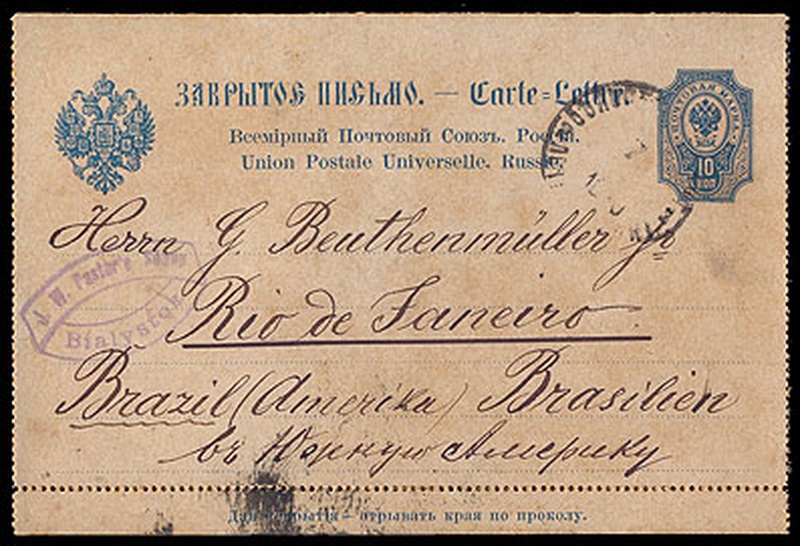 ЗАКРЫТОЕ ПИСЬМО. — Carte=Lettre.
Всемірный Почтовый Союзъ. Россія.
Union Postale Universelle. Russie.
ПОЧТОВАЯ МАРКА
10
КОП
Herrn G. Beuthenmüller jr
J. W. Pastor's
Bialystok
Rio de Janeiro.
Brazil (Amerika) Brasilien
въ Южную Америку
Для открытія – отрывать края по проколу.